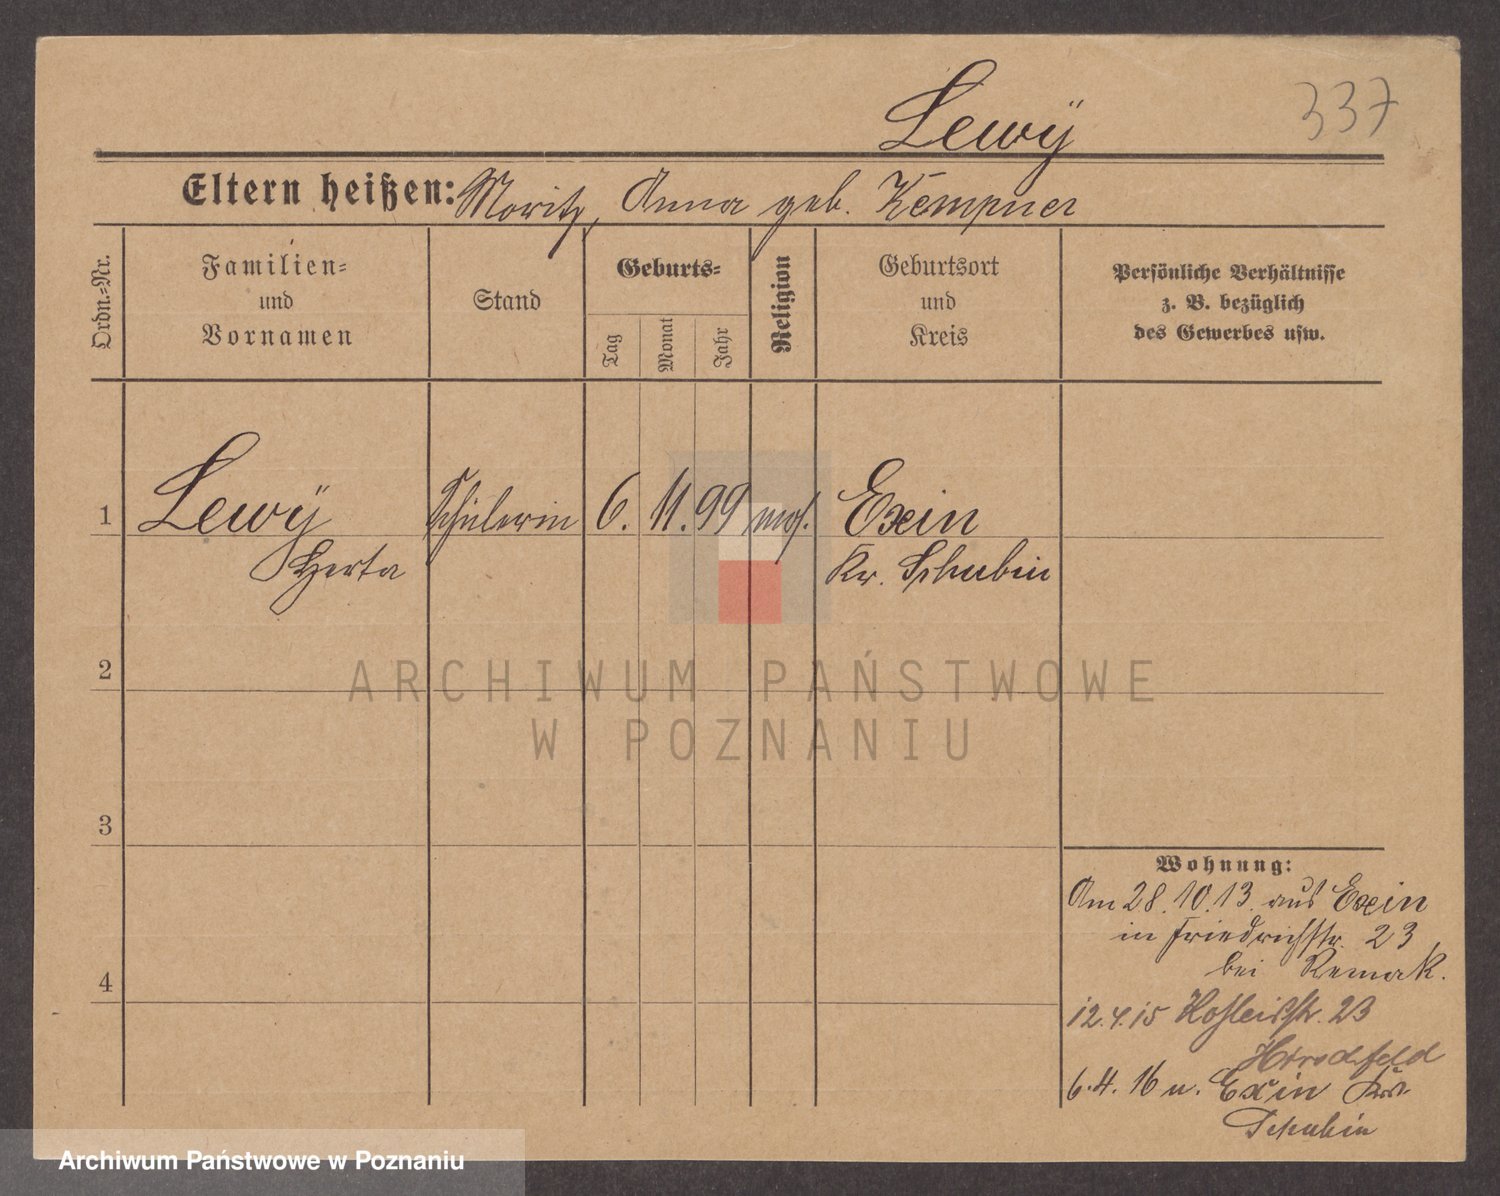 337
Lewÿ
Eltern heißen: Moritz, Anna geb. Kempner
Ordn.-Nr.
Familien-
und
Vornamen
Stand
Geburts-
Tag
Monat
Jahr
Religion
Geburtsort
und
Kreis
Persönliche Verhältnisse
z. B. bezüglich
des Gewerbes usw.
1 Lewÿ Schülerin 6. 11. 99 mos. Exin
Herta Kr. Schubin
2
3
4
Wohnung:
Am 28.10.13. aus Exin
in Friedrichstr. 23
bei Remak.
12.4.15 23
Hirschfeld
6.4.16 n. Exin
Schubin
ARCHIWUM PAŃSTWOWE
W POZNANIU
Archiwum Państwowe w Poznaniu